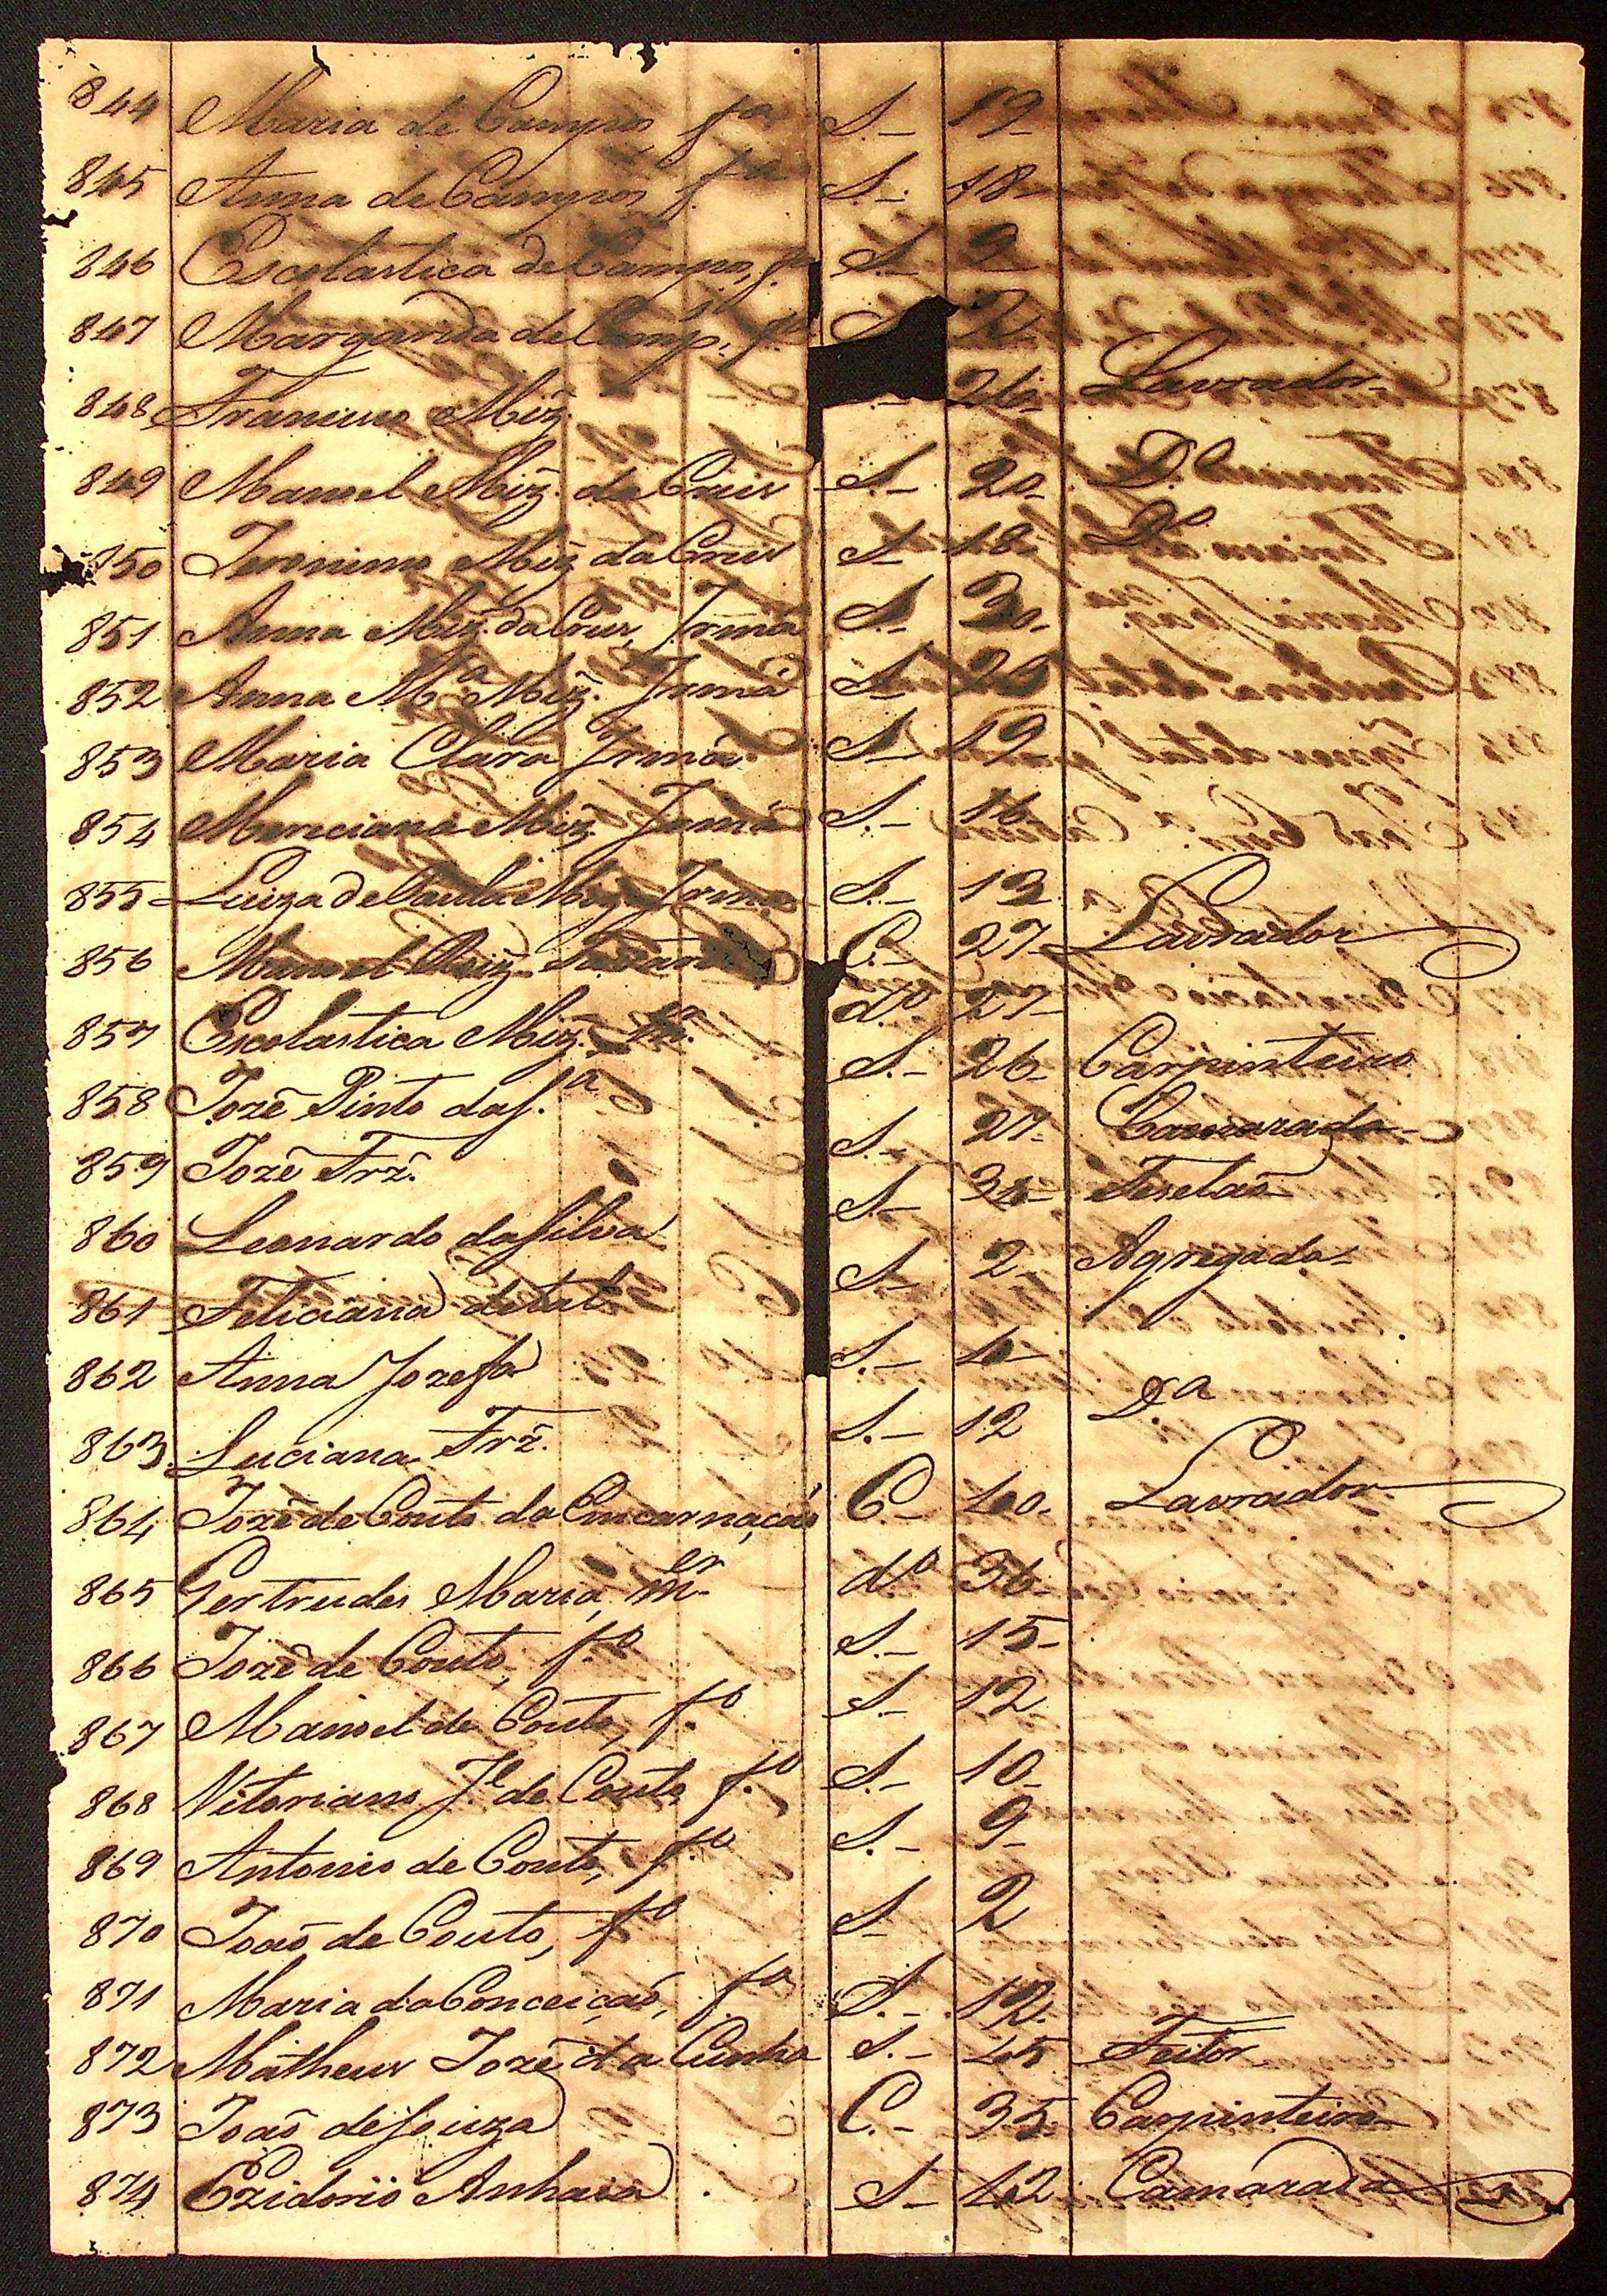 844 Maria de Campos f.a S.- 19-
845 Anna de Campos f.a S.- 18-
846 Escolastica de Campos, f.a S.- 9
847 Margarida de Camp. f.a S 2-
848 Francisco Miz. 26- Lavrador-
849 Manoel Miz. da Cruz S.- 20- D.o
850 Jeronimo Miz da Cruz S- 18- D.o
851 Anna Miz. da Cruz, Irmã S.- 30-
852 Anna M.a Miz. Irmã S- 25
853 Maria Clara Irmã S- 19-
854 Miz. Irmã S.- 16-
855 Luiza de Paula Irmã S.- 13
856 Manoel C.- 27- Lavrador
857 Escolastica Miz. d.o 27-
858 Jozé Pinto da S.a S.- 26- Carpinteiro
859 Jozé Frz. S.- 27- Camarada-
860 Leonardo da Silva S- Teselaõ
861 Feliciana de tal S- 2- Agregada-
862 Anna Jozefa S.-
863 Luciana Frz. S.- 12 D.a
864 Jozé de Couto da Encarnaçaõ C- 40- Lavrador
865 Gertrudes Maria, m.er d.o 36-
866 Jozé de Couto, f.o S.- 15-
867 Manoel de Couto, f.o S.- 12
868 Vitoriano J.e de Couto f.o S.- 10-
869 Antonio de Couto, f.o S.- 9-
870 Joaõ de Couto, f.o S- 2
871 Maria da Conceiçaõ, f.a S.- 12.
872 Matheus Jozé da Cunha S.- 45 Feitor
873 Joaõ de Souza C.- 35. Carpinteiro
874 Ezidorio Anhaia S- 42 Camarada